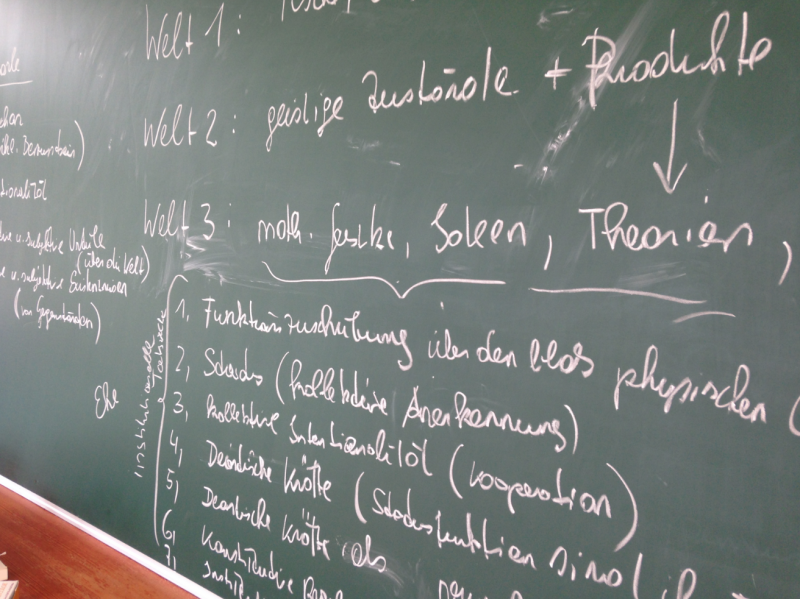 Welt 1:
Welt 2: geistige Zustände + Produkte
Welt 3: math. Gesetze, Ideen, Theorien,
1, Funktionszuschreibung über den bloß physischen (
2, Status (kollektive Anerkennung)
3, kollektive Intentionalität (Kooperation)
4, Deontische Kräfte (Statusfunktionen sind
5, Deontische Kräfte als
6, Konstitutive
7,
institutionelle Tatsache
Ehe
ktive u. subjektive Urteile
(über die Welt)
e u. subjektive
(von Gegenständen)